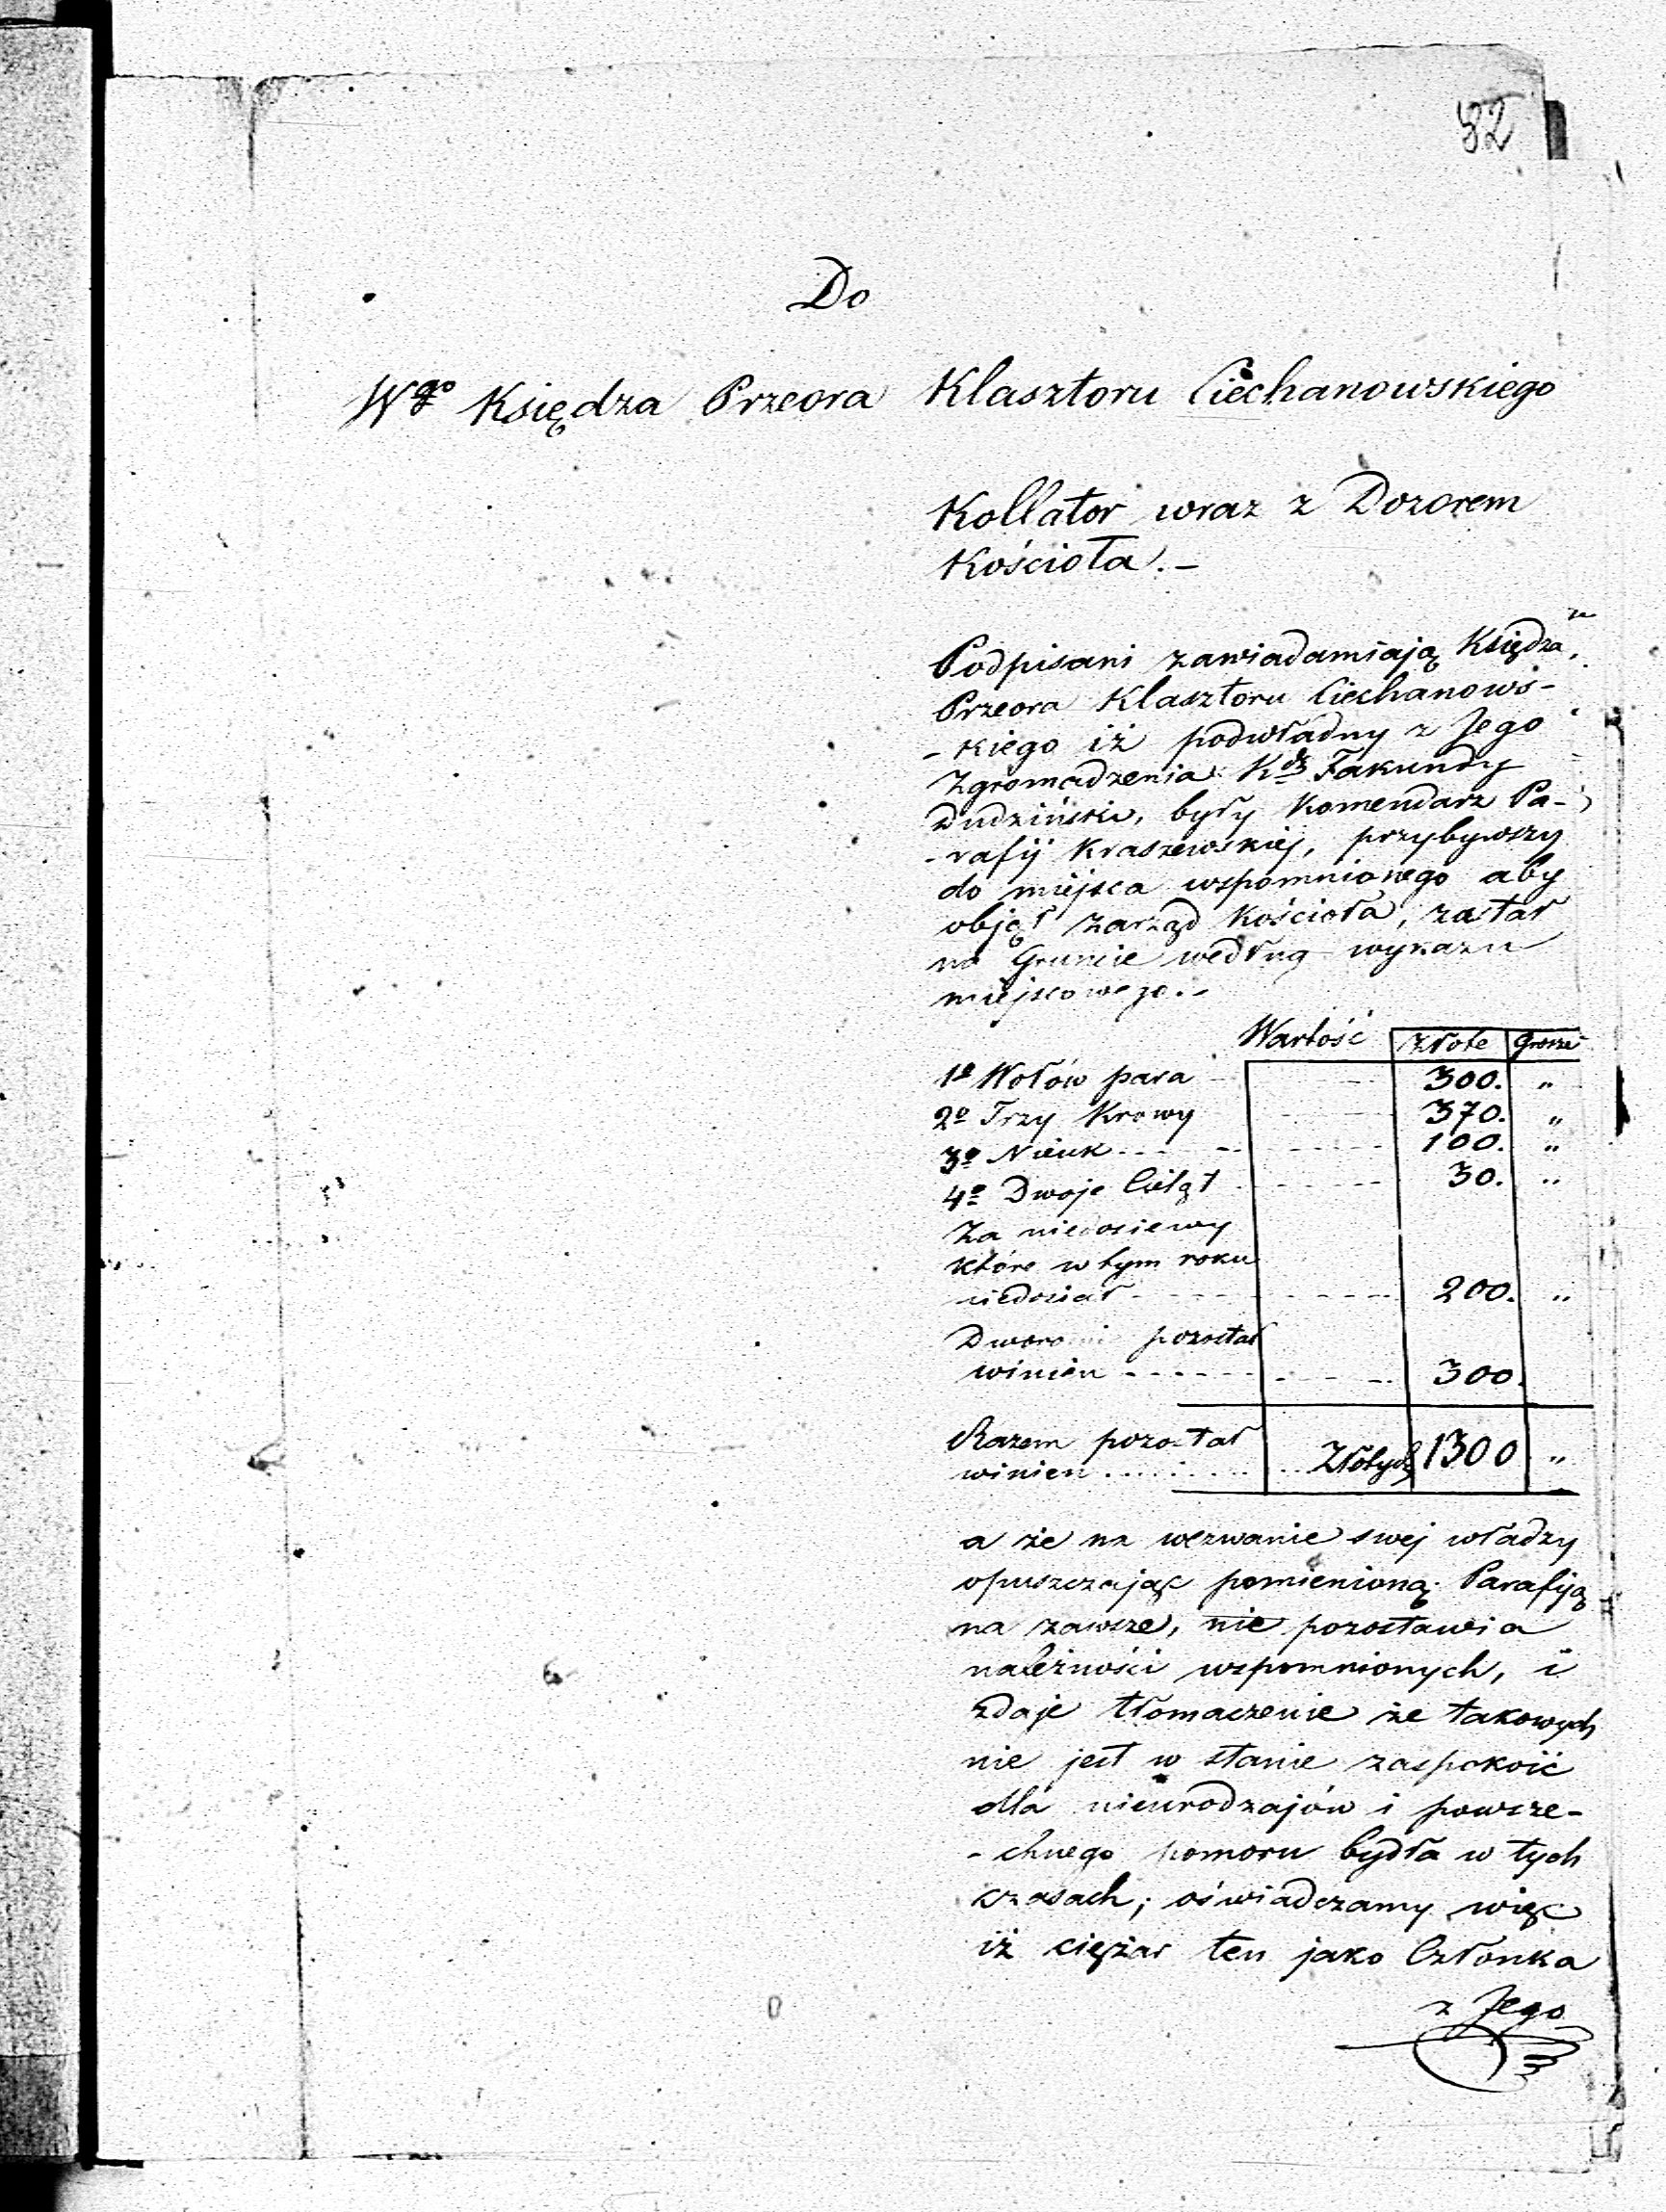 82
Do
Wgo Księdza Przeora Klasztoru Ciechanowskiego
Kollator wraz z Dozorem
Kościoła. –
Podpisani zawiadamiają Księdza
Przeora Klasztoru Ciechanows-
- kiego iż podwładny z Jego
Zgromadzenia Kdz Fakundy
Dudziński, były Komendarz Pa-
- rafij Kraszewskiej, przybywszy
do miejsca wspomnionego aby
objął zarząd Kościoła, zastał
na Gruncie według wykazu
miejscowego. -
Wartość złote Grosze
1o Wołów para 300. „
2o Trzy Krowy 370. „
3o Nieuk 100. „
4o Dwoje Cieląt 30. „
Za niedosiewy
które w tym roku
niedosiał 200. „
Dworowi pozostał
winien 300.
Razem pozostał
winien Złotych 1300 „
a że na wezwanie swej władzy
opuszczając pomienioną Parafiją
na zawsze, nie pozostawia
należności wspomnionych, i
zdaje tłomaczenie że takowych
nie jest w stanie zaspokoić
dla nieurodzajów i powsze-
- chnego pomoru bydła w tych
czasach; oświadczamy więc
iż ciężar ten jako Członka
z Jego